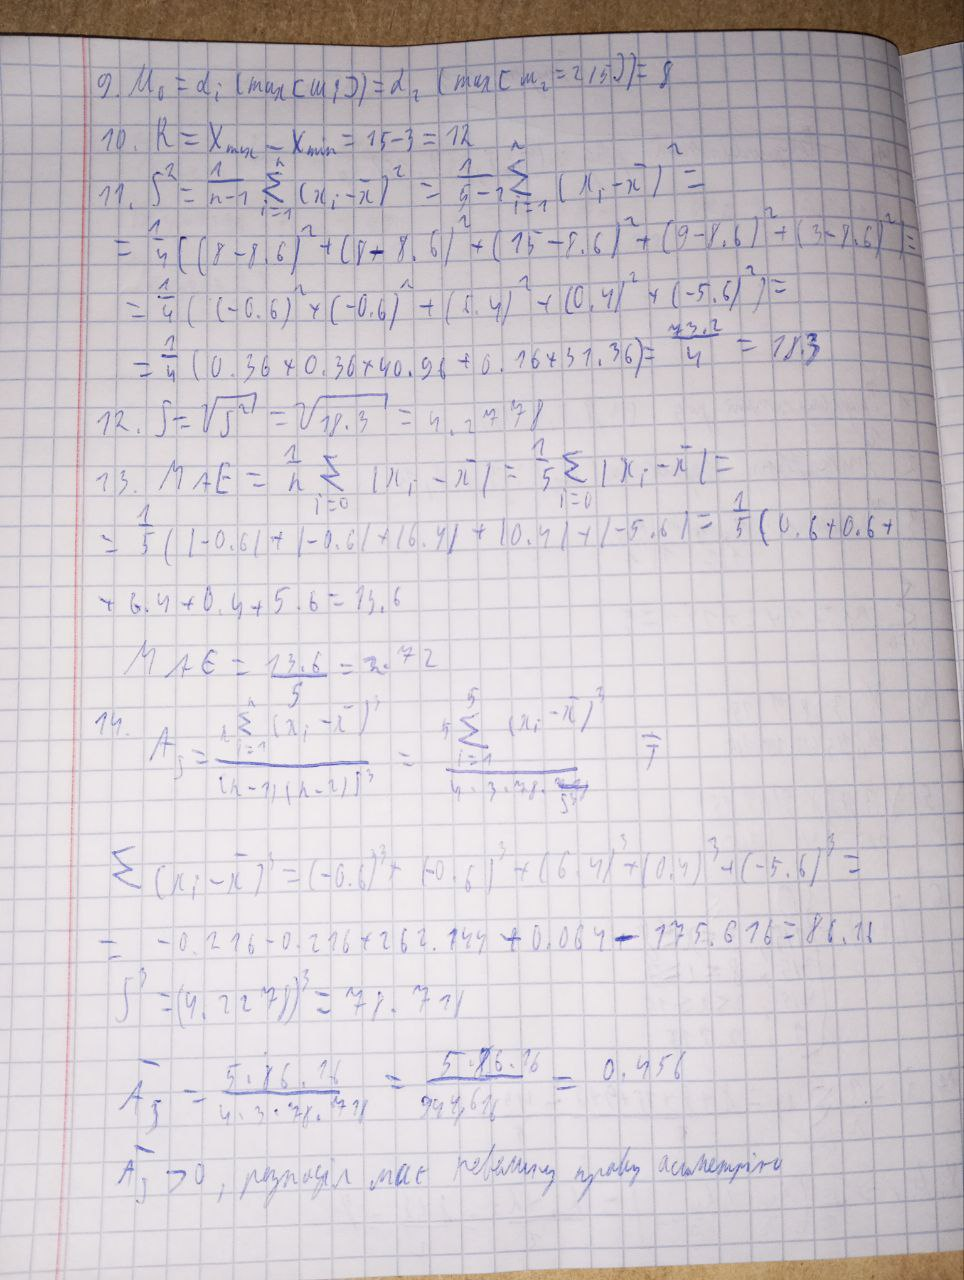 9. M₀ = dᵢ (max(mᵢ)) = d₂ (max(m₂ = 2/5)) = 8
10. R = Xmax − Xmin = 15-3 = 12
11. S² = 1/(n-1) Σ(i=1, n) (xᵢ - x̄)² = 1/(5-1) Σ(i=1, n) (xᵢ - x̄)² =
= 1/4 ((8-8.6)² + (8-8.6)² + (15-8.6)² + (9-8.6)² + (3-8.6)²) =
= 1/4 ((-0.6)² + (-0.6)² + (6.4)² + (0.4)² + (-5.6)²) =
= 1/4 (0.36 + 0.36 + 40.96 + 0.16 + 31.36) = 73.2/4 = 18.3
12. S = √S² = √18.3 = 4.2778
13. MAE = 1/n Σ(i=0) |xᵢ - x̄| = 1/5 Σ(i=0) |xᵢ - x̄| =
= 1/5 (|-0.6| + |-0.6| + |6.4| + |0.4| + |-5.6|) = 1/5 (0.6 + 0.6 +
+ 6.4 + 0.4 + 5.6 = 13.6
MAE = 13.6/5 = 2.72
14. As = n Σ(i=1, n) (xᵢ - x̄)³ / (n-1)(n-2)S³ = 5 Σ(i=1, 5) (xᵢ - x̄)³ / 4·3·S³ =
Σ (xᵢ - x̄)³ = (-0.6)³ + (-0.6)³ + (6.4)³ + (0.4)³ + (-5.6)³ =
= -0.216 - 0.216 + 262.144 + 0.064 - 175.616 = 86.16
S³ = (4.2278)³ = 78.718
As = 5·86.16 / 4·3·78.718 = 5·86.16 / 944.616 = 0.456
As > 0, розподіл має невелику праву асиметрію